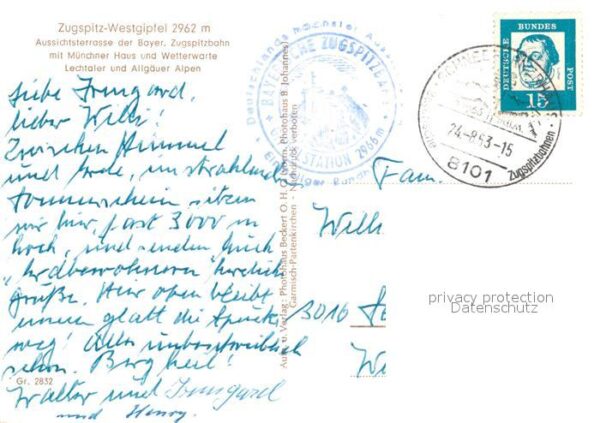 Zugspitz-Westgipfel 2962 m
Aussichtsterrasse der Bayer. Zugspitzbahn
mit Münchner Haus und Wetterwarte
Lechtaler und Allgäuer Alpen
Liebe Irmgard,
lieber Willi!
Zwischen Himmel
und Erde, im strahlenden
Sonnenschein sitzen
wir hier, fast 3000 m
hoch, und senden Euch
"Erdbewohnern" herzliche
Grüße. Hier oben bleibt
einem glatt die Spucke
weg! Alles unbeschreiblich
schön. Berg heil!
Walter und Irmgard
und Henry.
Gr. 2832
Aufn. u. Verlag: Photohaus Beckert O. H. G. (Inhaber: Photohaus B. Johannes)
Garmisch-Partenkirchen - Nachdruck verboten
Deutschlands höchster
BAYERISCHE ZUGSPITZBAHN
STATION 2966 m
DEUTSCHE BUNDESPOST
15
24.-8.63-15
8101
Zugspitzbahnen
Fam.
Willi
3016
privacy protection
Datenschutz